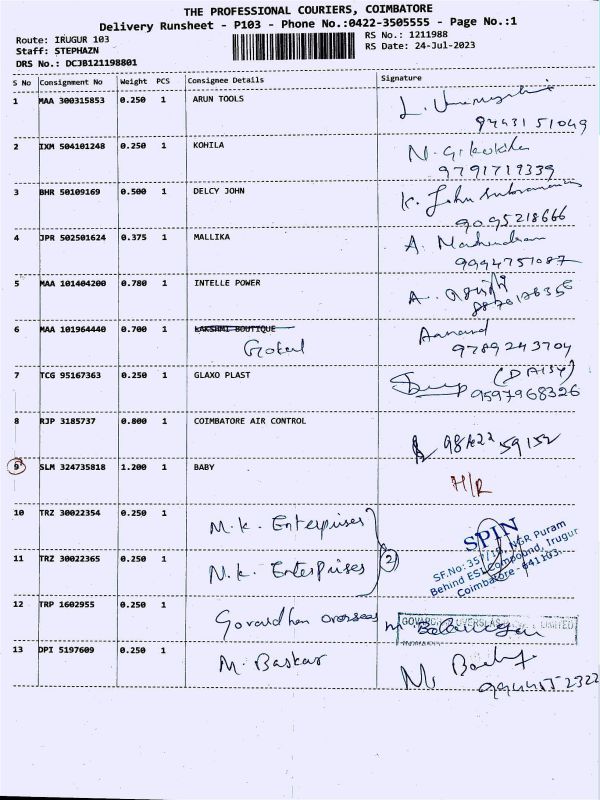 THE PROFESSIONAL COURIERS, COIMBATORE
Delivery Runsheet - P103 - Phone No.:0422-3505555 - Page No.:1
Route: IRUGUR 103
RS No.: 1211988
Staff: STEPHAZN
RS Date: 24-Jul-2023
DRS No.: DCJB121198801
S No Consignment No Weight PCS Consignee Details Signature
1 MAA 300315853 0.250 1 ARUN TOOLS
9443151049
2 IXM 504101248 0.250 1 KOHILA N. Gokokila
9791719339
3 BHR 50109169 0.500 1 DELCY JOHN K. John
9095218666
4 JPR 502501624 0.375 1 MALLIKA A. Mahendran
9994751087
5 MAA 101404200 0.780 1 INTELLE POWER A.
6 MAA 101964440 0.700 1 LAKSHMI BOUTIQUE Aanand
Gokul 9789243704
7 TCG 95167363 0.250 1 GLAXO PLAST (DAISY)
9597968326
8 RJP 3185737 0.800 1 COIMBATORE AIR CONTROL
9 SLM 324735818 1.200 1 BABY H/R
10 TRZ 30022354 0.250 1 M.K. Enterprises
SPIN
11 TRZ 30022365 0.250 1 N.K. Enterprises 2
SF.No: 357/1B, NGR Puram
Behind ESI Compound, Irugur
Coimbatore - 641103.
12 TRP 1602955 0.250 1 Govardhan overseas
13 DPI 5197609 0.250 1 M. Baskar